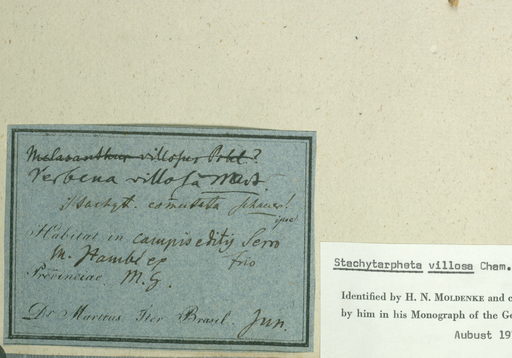 Melasanthus villosus Pohl.?
Verbena villosa Mart.
Stachyt. Schauer!
ipse
Habitat in campis editis Serro
frio
Provinciae M. G.
Dr Martius Iter Brasil. Jun.
Stachytarpheta villosa Cham.
Identified by H. N. MOLDENKE and c
by him in his Monograph of the Ge
Aubust 19